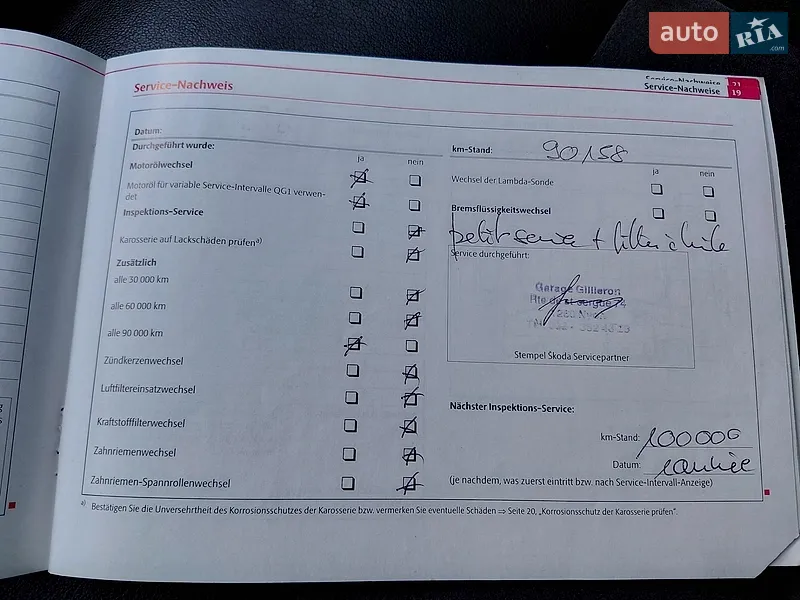 auto RIA .com
Service-Nachweise 21
Service-Nachweis
Service-Nachweise 19
Datum:
Durchgeführt wurde:
km-Stand: 90158
ja nein
ja nein
Motorölwechsel
Wechsel der Lambda-Sonde
Motoröl für variable Service-Intervalle QG1 verwen-
det
Bremsflüssigkeitswechsel
Inspektions-Service
petit service + filtre à huile
Karosserie auf Lackschäden prüfen a)
Service durchgeführt:
Zusätzlich
alle 30 000 km
Garage Gillieron
alle 60 000 km
alle 90 000 km
Stempel Škoda Servicepartner
Zündkerzenwechsel
Luftfiltereinsatzwechsel
Nächster Inspektions-Service:
Kraftstofffilterwechsel
km-Stand: 100000
Zahnriemenwechsel
Datum:
Zahnriemen-Spannrollenwechsel
(je nachdem, was zuerst eintritt bzw. nach Service-Intervall-Anzeige)
a) Bestätigen Sie die Unversehrtheit des Korrosionsschutzes der Karosserie bzw. vermerken Sie eventuelle Schäden ⇒ Seite 20, „Korrosionsschutz der Karosserie prüfen“.